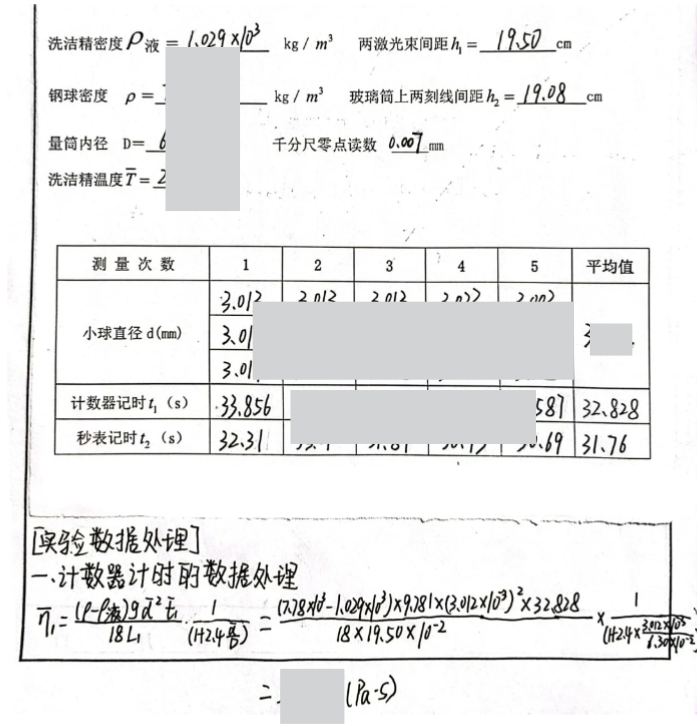 洗洁精密度 ρ液 = 1.029×10³ kg / m³ 两激光束间距 h₁ = 19.50 cm
钢球密度 ρ = kg / m³ 玻璃筒上两刻线间距 h₂ = 19.08 cm
量筒内径 D= 6 千分尺零点读数 0.007 mm
洗洁精温度 T̄ = 2
测量次数 1 2 3 4 5 平均值
小球直径 d(mm) 3.012 3.012 3.012
3.01
3.01
计数器记时 t₁ (s) 33.856 587 32.828
秒表记时 t₂ (s) 32.31 .69 31.76
[实验数据处理]
一、计数器计时的数据处理
η̄₁ = (ρ-ρ液)g d̄² t̄₁ / 18L₁ · 1 / (1+2.4 d̄/D̄) = (7.78×10³-1.029×10³)×9.781×(3.012×10⁻³)²×32.828 / 18×19.50×10⁻² × 1 / (1+2.4× 3.012×10⁻³ / 6.30×10⁻²)
= (Pa·S)